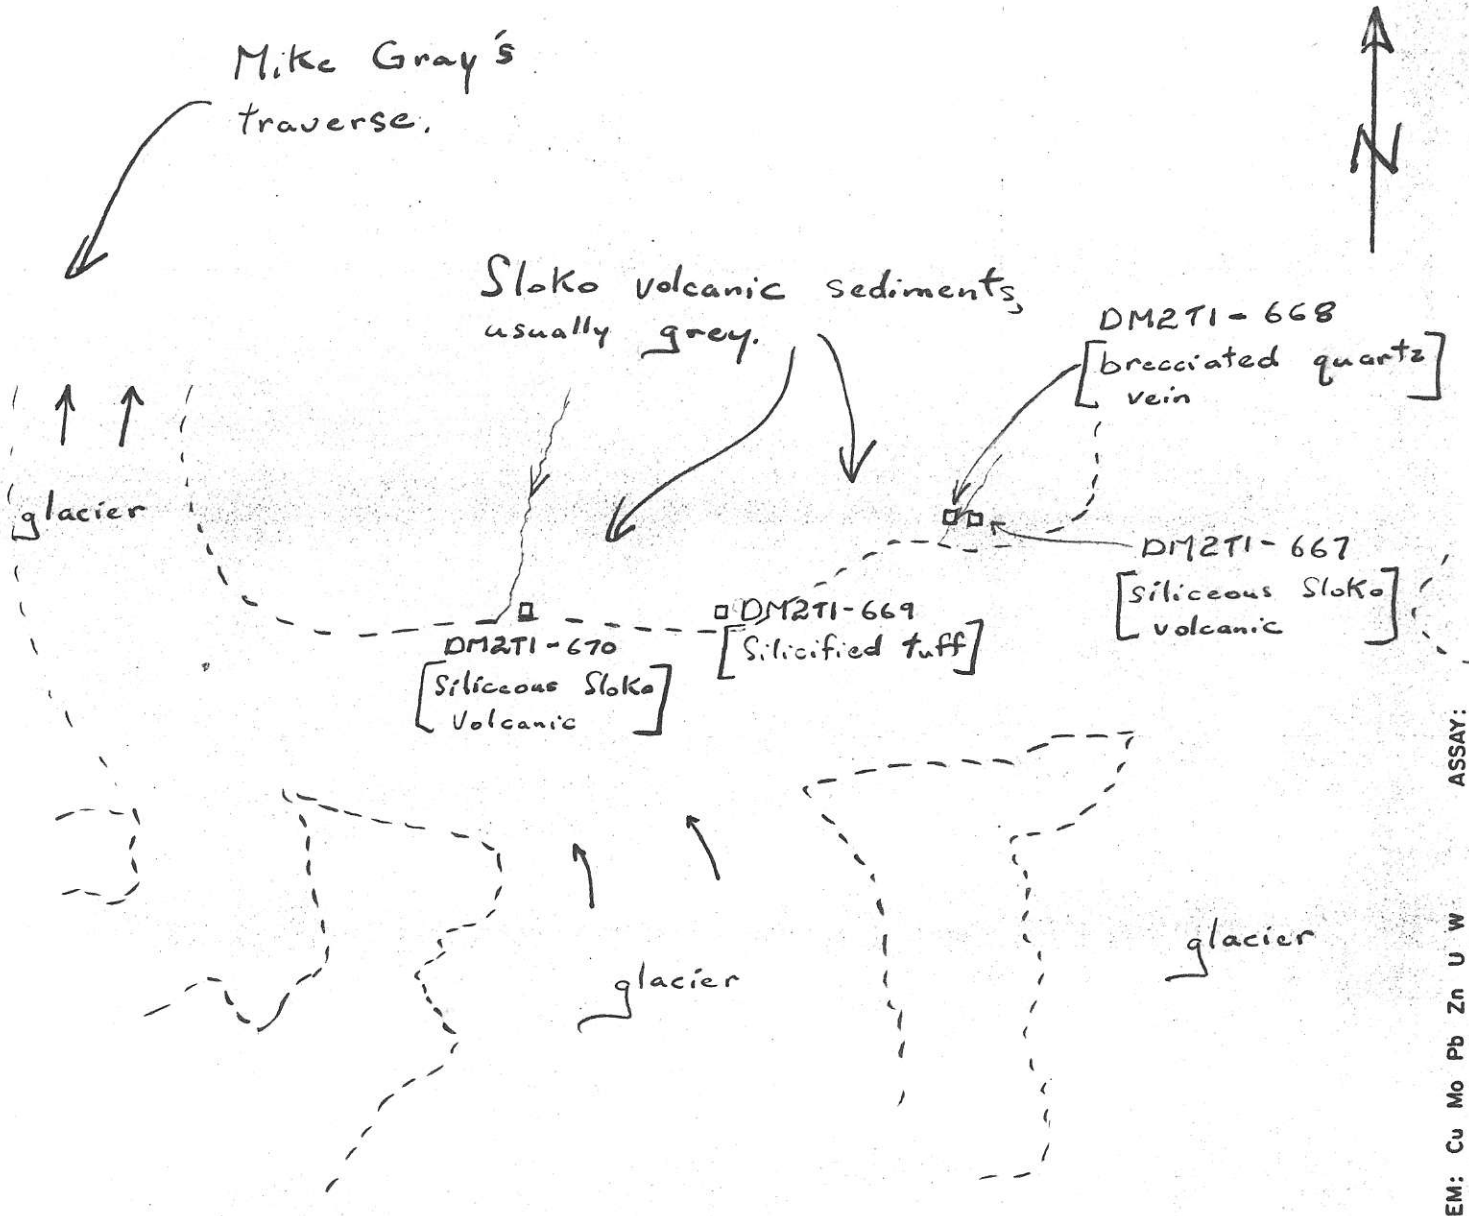 Mike Gray's
traverse.
N
Sloko volcanic sediments,
usually grey.
DM2TI-668
[brecciated quartz
vein]
glacier
DM2TI-667
[siliceous Sloko
volcanic]
DM2TI-669
[Silicified tuff]
DM2TI-670
[Siliceous Sloko
Volcanic]
glacier
glacier
EM: Cu Mo Pb Zn U W ASSAY: